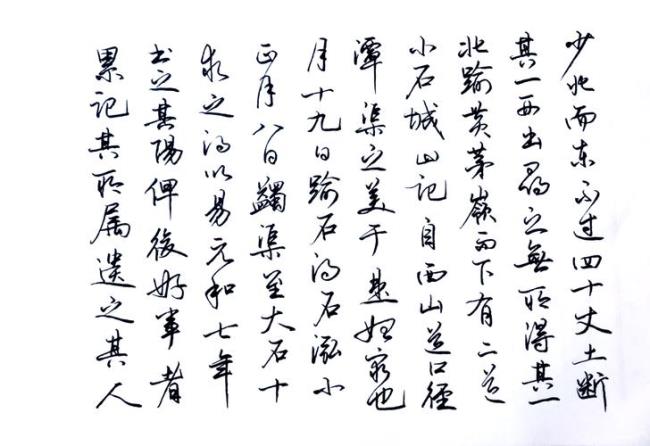 累记其所属遗之其人
书之其陽俾後好事者
求之得以易元和七年
正月八日蠲渠至大石十
月十九日踰石得石泓小
潭渠之美于是始窮也
小石城山记自西山道口徑
北踰黄茅嶺而下有二道
其一西出尋之無所得其一
少北而东不过四十丈土断